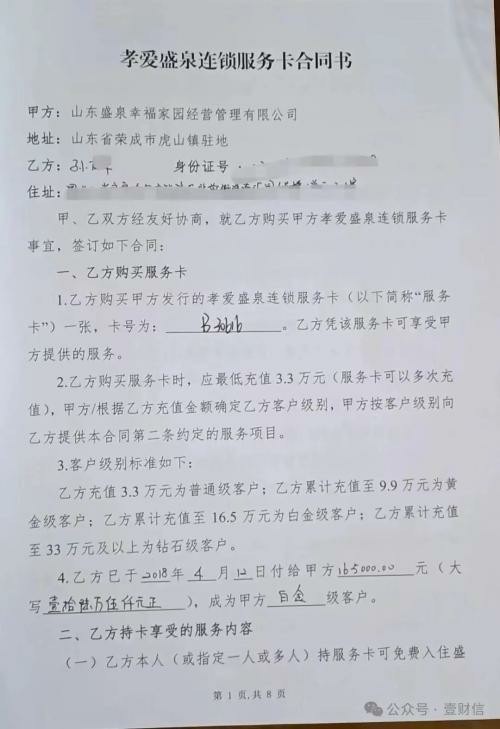 孝爱盛泉连锁服务卡合同书
甲方：山东盛泉幸福家园经营管理有限公司
地址：山东省荣成市虎山镇驻地
乙方： 身份证号：
住址：
甲、乙双方经友好协商，就乙方购买甲方孝爱盛泉连锁服务卡
事宜，签订如下合同：
一、乙方购买服务卡
1.乙方购买甲方发行的孝爱盛泉连锁服务卡（以下简称“服务
卡”）一张，卡号为：。乙方凭该服务卡可享受甲
方提供的服务。
2.乙方购买服务卡时，应最低充值 3.3 万元（服务卡可以多次充
值），甲方/根据乙方充值金额确定乙方客户级别，甲方按客户级别向
乙方提供本合同第二条约定的服务项目。
3.客户级别标准如下：
乙方充值 3.3 万元为普通级客户；乙方累计充值至 9.9 万元为黄
金级客户；乙方累计充值至 16.5 万元为白金级客户；乙方累计充值
至 33 万元及以上为钻石级客户。
4.乙方已于2018年 4 月 12日付给甲方165000.00 元（大
写壹拾陆万伍仟元正），成为甲方 白金 级客户。
二、乙方持卡享受的服务内容
（一）乙方本人（或指定一人或多人）持服务卡可免费入住盛
第 1 页,共 8 页
公众号·壹财信